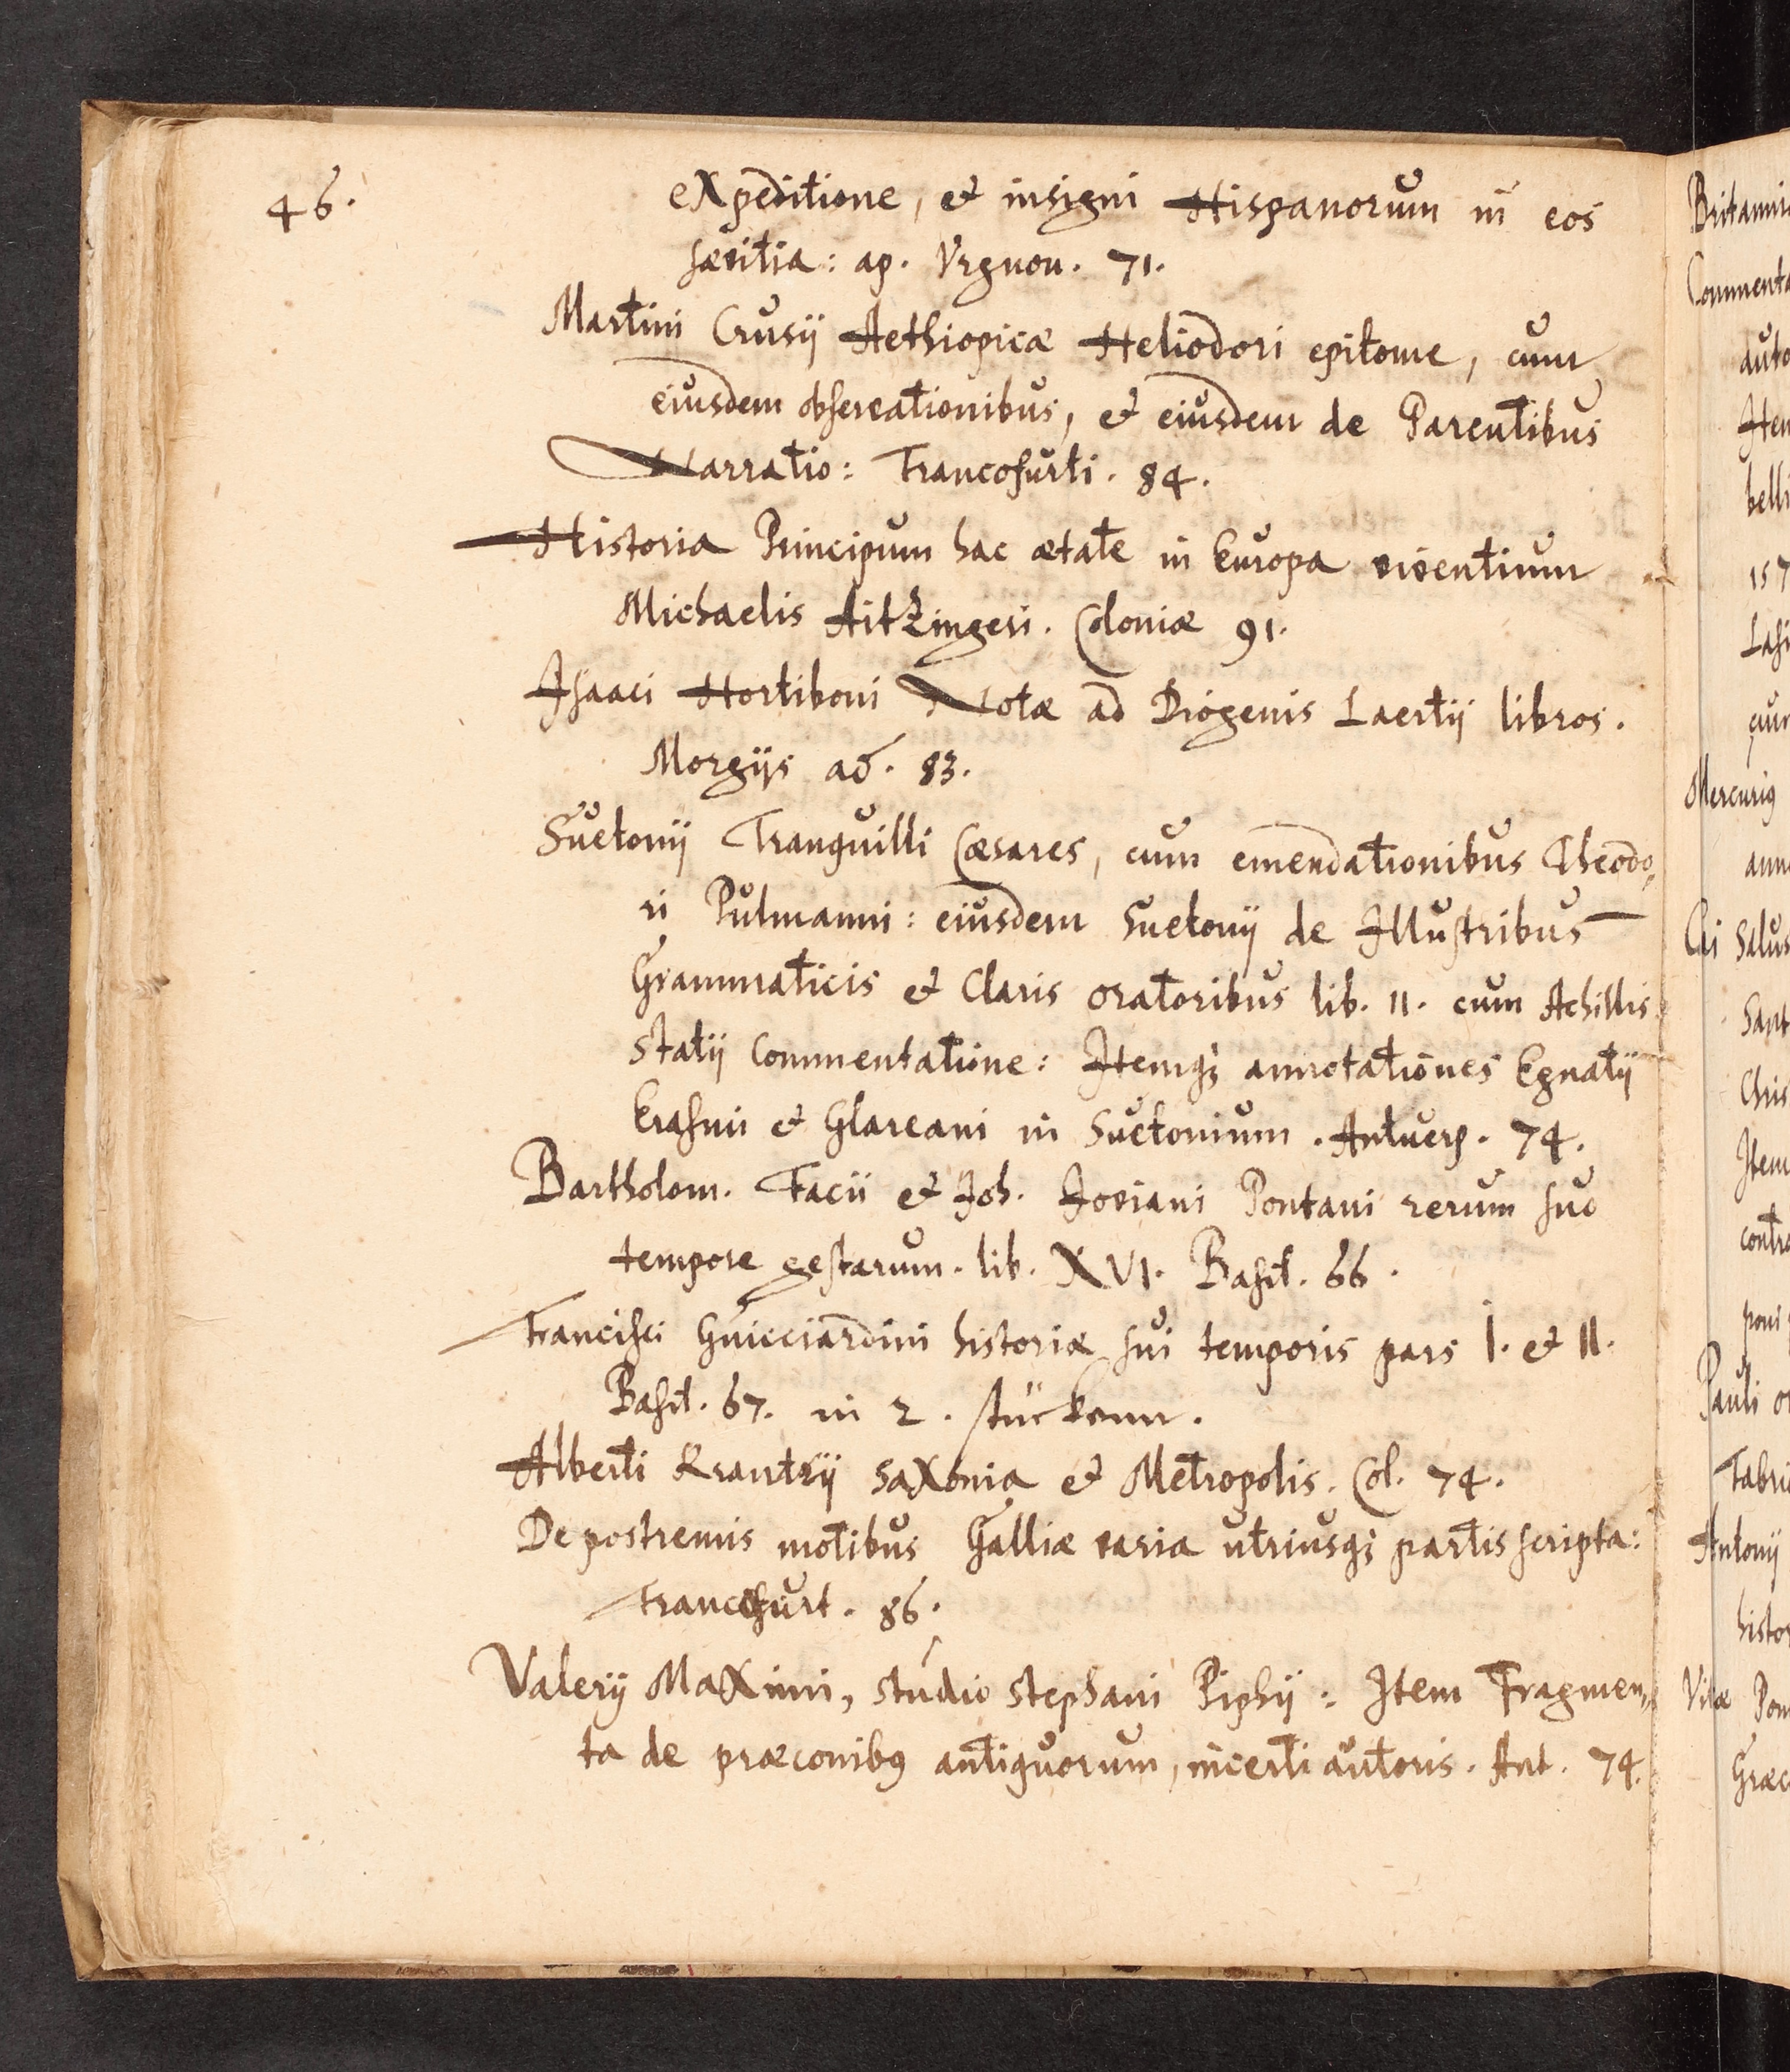 46.
expeditione, et insigni Hispanorum in eos
sævitia: ap. Vrgnon. 71.
Martini Crusij Aethiopicæ Heliodori epitome, cum
eiusdem observationibus, et eiusdem de Parentibus
Narratio: Francofurti. 84.
Historia Principum hac ætate in Europa viventium
Michaelis Aitzingeri. Coloniæ 91.
Isaaci Hortiboni Notæ ad Diogenis Laertij libros.
Morgijs aõ. 83.
Suetonij Tranquilli Cæsares, cum emendationibus Theodo„
ri Pulmanni: eiusdem Suetonij de Illustribus
Grammaticis et Claris oratoribus lib. II. cum Achillis
Statij Commentatione: Itemq; annotationes Egnatij
Erasmi et Glareani in Suetonium. Antuerp. 74.
Bartholom. Facii et Joh. Joviani Pontani rerum suo
tempore gestarum. lib. XVI. Basil. 66.
Francisci Guicciardini historiæ sui temporis pars I. et II.
Basil. 67. in 2. stückenn.
Alberti Krantzij Saxonia et Metropolis. Col. 74.
De postremis motibus Galliæ varia utriusq; partis scripta:
Francofurt. 86.
Valerij Maximi, studio Stephani Pighij: Item Fragmen„
ta de præconibꝰ antiquorum, incerti autoris. Ant. 74.
Commenta
belli
157
Mercuriꝰ
Salus
Chris
Item
contra
poni
Pauli
Fabri
Antonij
histor
Vitæ Pon
Græc